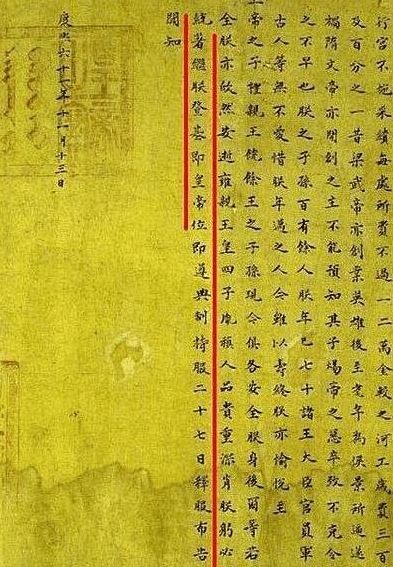 行宮不施采繢每處所費不過一二萬金較之河工歲費三百
及百分之一昔梁武帝亦創業英雄後至老年為侯景所逼遂
禍隋文帝亦開創之主不能預知其子煬帝之惡卒致不克令
之不早也朕之子孫百有餘人朕年已七十諸王大臣官員軍
古人等無不愛惜朕年邁之人今雖以壽終朕亦愉悅至
帝之子禮親王饒餘王之子孫現今俱各安全朕身後爾等若
全朕亦欣然安逝雍親王皇四子胤禛人品貴重深肖朕躬必
統著繼朕登基即皇帝位即遵典制持服二十七日釋服布告
聞知
康熙六十一年十一月十三日